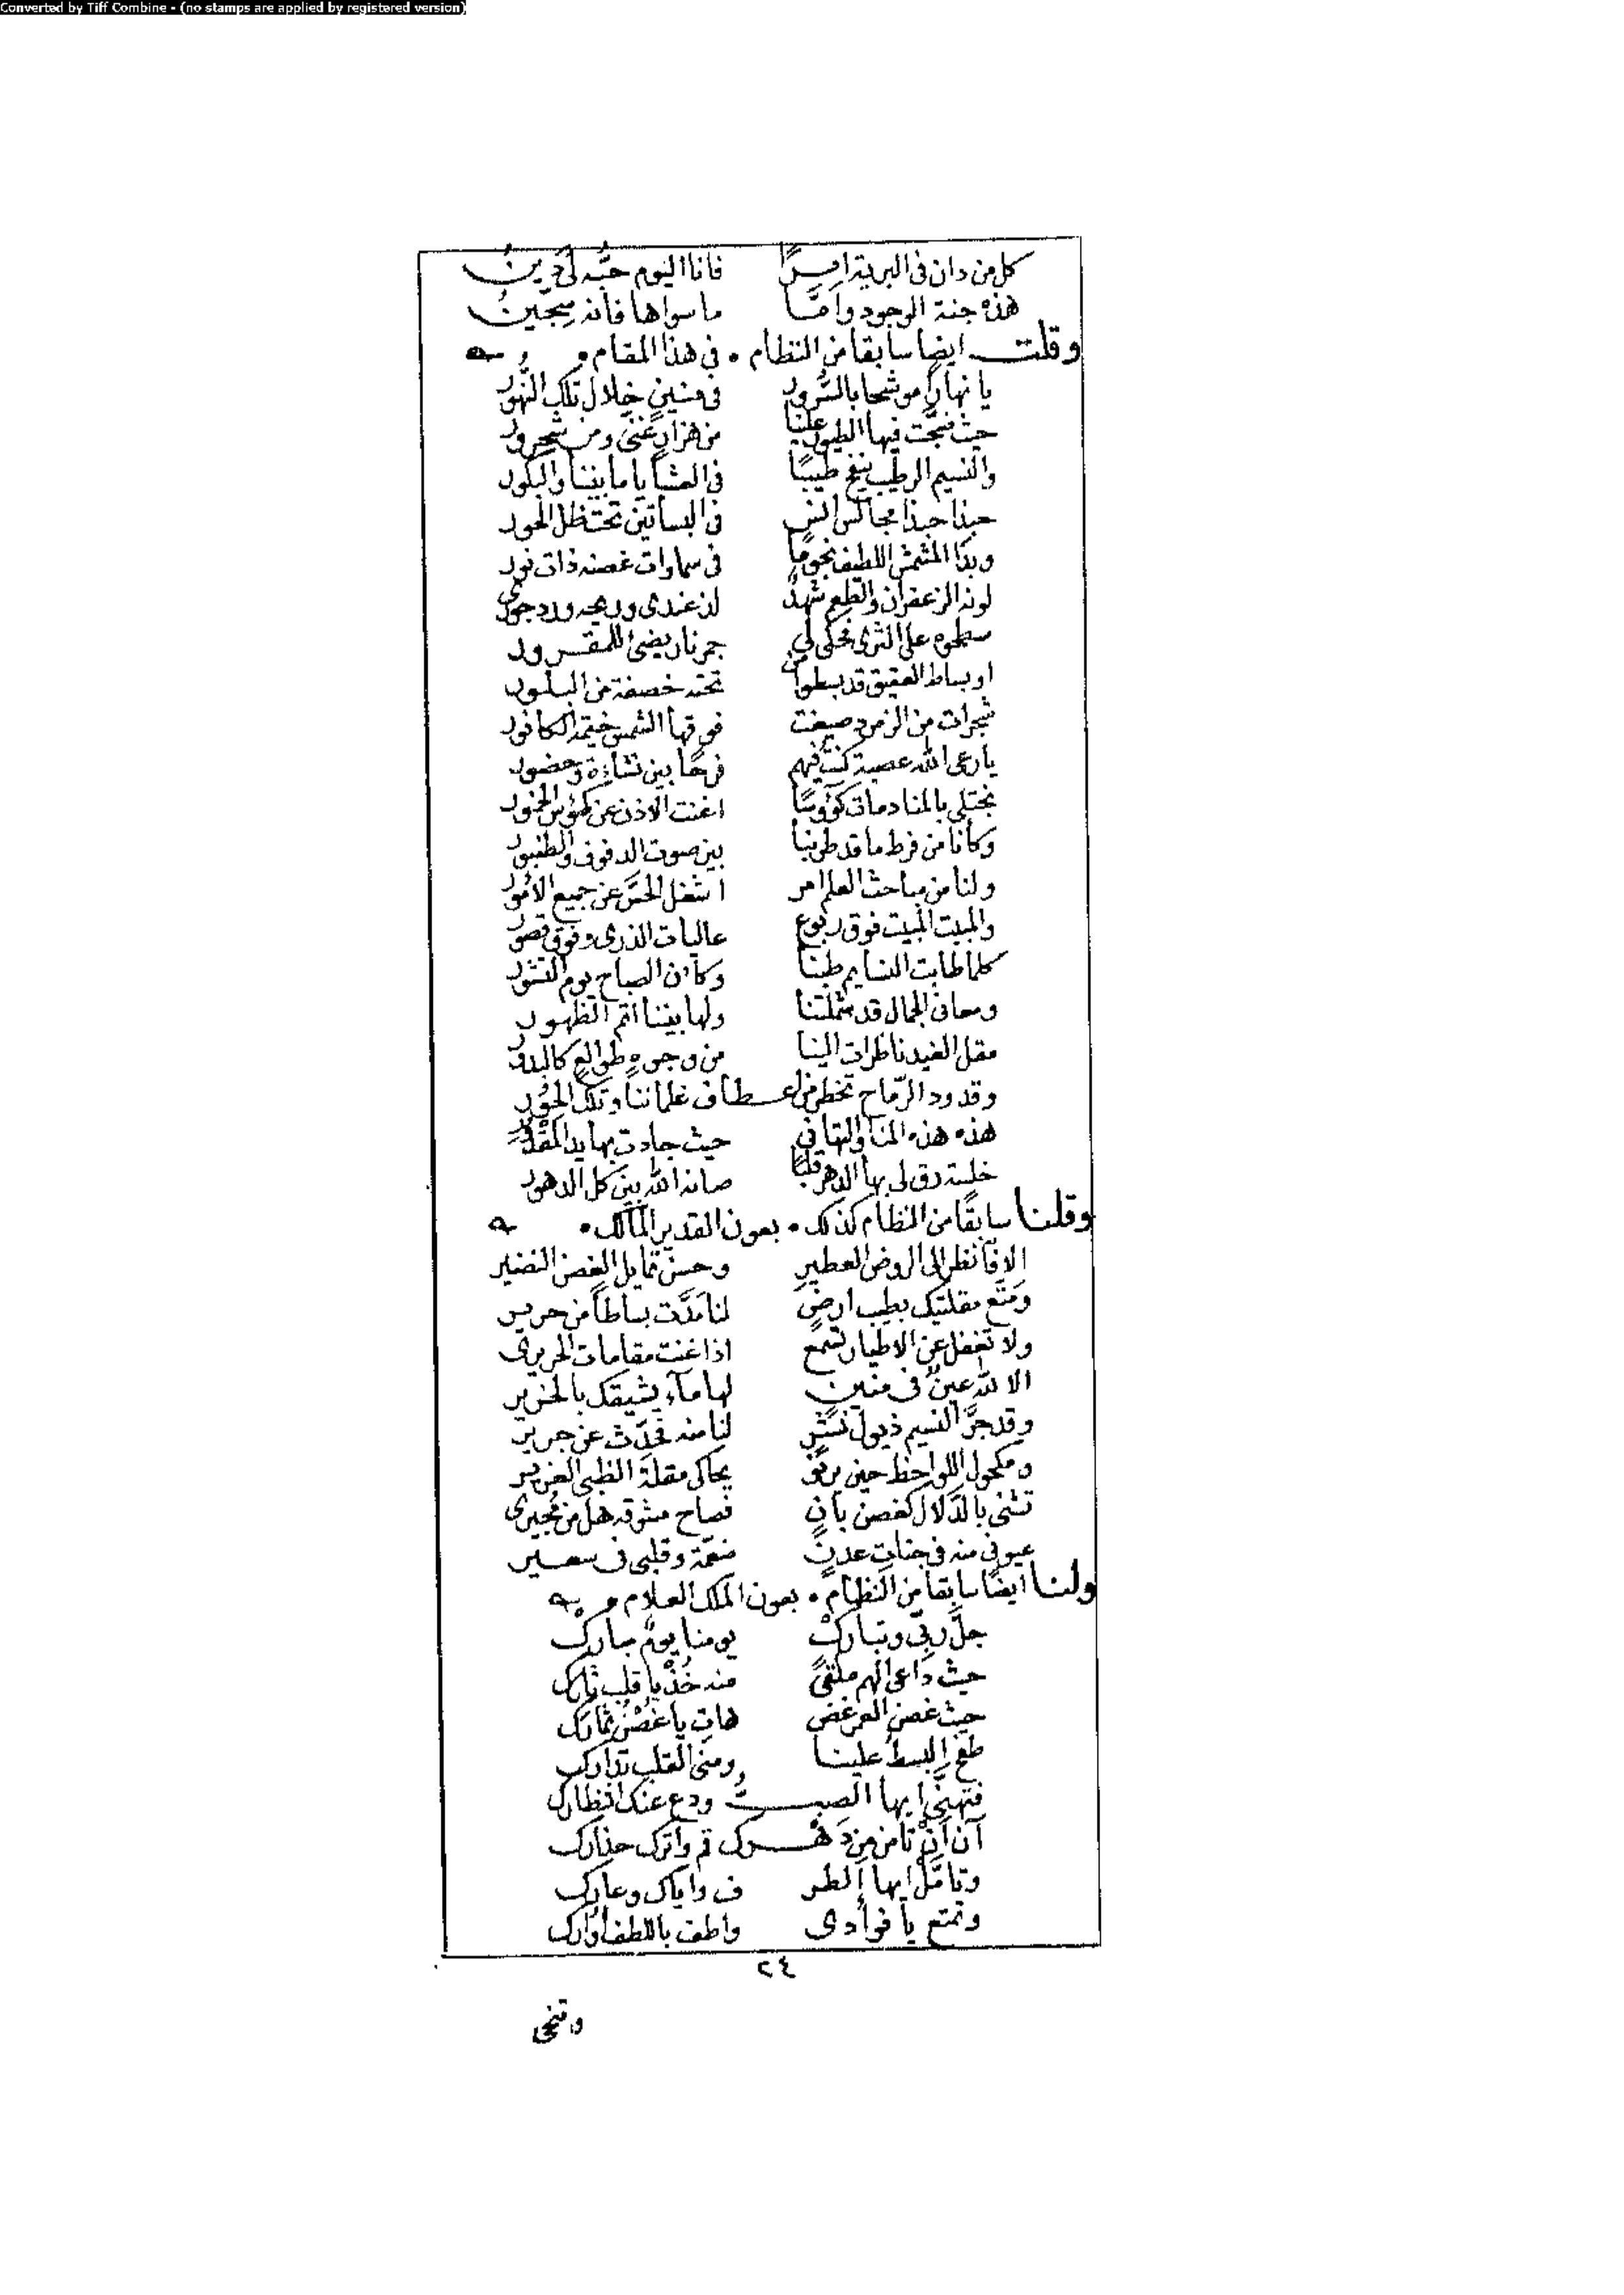 Converted by Tiff Combine - (no stamps are applied by registered version)
كل من دان في البرية امرًا فانا اليوم حبّه لي دينُ
هذه جنة الوجود وامّا ما سواها فانه سجّينُ
وقلت ايضا سابقا من النظام • في هذا المقام •
يا نهارا موشحا بالسرور في منين خلال تلك النهور
حيث ضجّت فيها الطيور علينا من هزارٍ غنى ومن شحرور
والنسيم الرطيب ينفح طيبًا في العشايا ما بيننا والبكور
حبذا حبذا مجالس انس في البساتين تحت ظل الحور
وبدا المشمش اللطيف نجومًا في سماوات غصنه ذات نور
لونه الزعفران والطعم شهدٌ لذ عندي وريحه ورد جوري
سطحوه على الثرى فحكى لي جمر نار يضئ للمقرور
او بساط العقيق قد بسطوا من تحته خصفة من البلور
شجرات من الزمرد صيغت فوقها الشمس خيمة الكافور
يا رعى الله عصبة كنت فيهم فرحًا بين نشاءة وحضور
نجتلي بالمنادمات كؤوسًا اغنت الاذن عن كؤس الخمور
وكانا من فرط ما قد طربنا بين صوت الدفوف والطنبور
ولنا من مباحث العلم امر اشغل الحسّ عن جميع الامور
والمبيت المبيت فوق ربوع عاليات الذرى وفوق قصور
كلما طابت النسايم طبنا وكان الصباح يوم النشور
ومعاني الجمال قد شملتنا ولها بيننا اتم الظهور
مقل الغيد ناظرات الينا من وجوهٍ طوالعٍ كالبدور
وقدود الرّماح تخطر من اعطاف غلماننا وتلك الحور
هذه هذه المنا والتهاني حيث جادت بها يد المقدور
خلسة رق لي بها الدهر قلبًا صانه الله بين كل الدهور
وقلنا سابقًا من النظام كذلك • بعون القدير المالك •
الا فانظر الى الروض العطير وحسن تمايل الغصن النضير
ومتّع مقلتيك بطيب ارضٍ لنا مَدَّت بساطًا من حرير
ولا تغفل عن الاطيار تسمع اذا غنت مقامات الحريري
الا لله عينٌ في منين لها مآء يشيقك بالخرير
وقد جرّ النسيم ذيول نشرٍ لنا منه تحدّث عن جرير
ومكحول اللواحظ حين يرنو يحاكي مقلة الظبي الغرير
تثنى بالدّلال كغصن بانٍ فصاح مشوقه هل من مُجيري
عيوني منه في جنات عدنٍ منعّمة وقلبي في سعير
ولنا ايضًا سابقا من النظام • بعون الملك العلام •
جلَّ ربّي وتبارك يومنا يومٌ مبارك
حيث داعي الهم ملقىً منه خُذ يا قلب ثارك
حيث غصن العمر غض هات يا غصن ثمارك
طفح البسط علينا ومنى القلب تدارك
فتهنّى ايها الصبّ ودع عنك انتظارك
آن ان تامن من دَهرك قم واترك حذارك
وتامّل ايها الطرف واياك وعارك
وتمتع يا فوادي واطف باللطف اوارك
٢٤
وتنحى